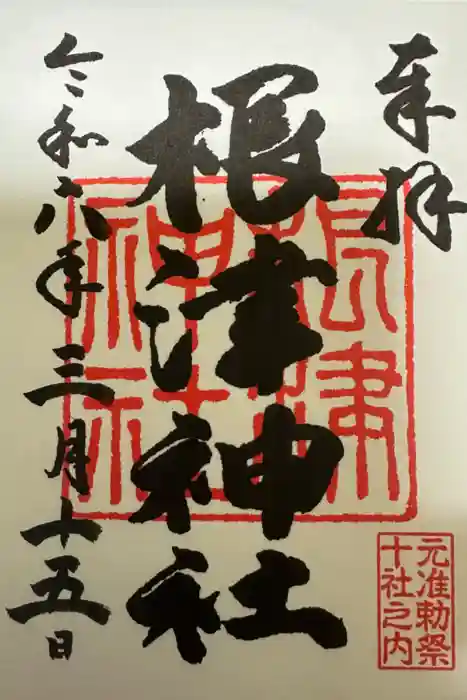 奉拝
根津神社
令和六年三月十五日
根津神社
元准勅祭
十社之内